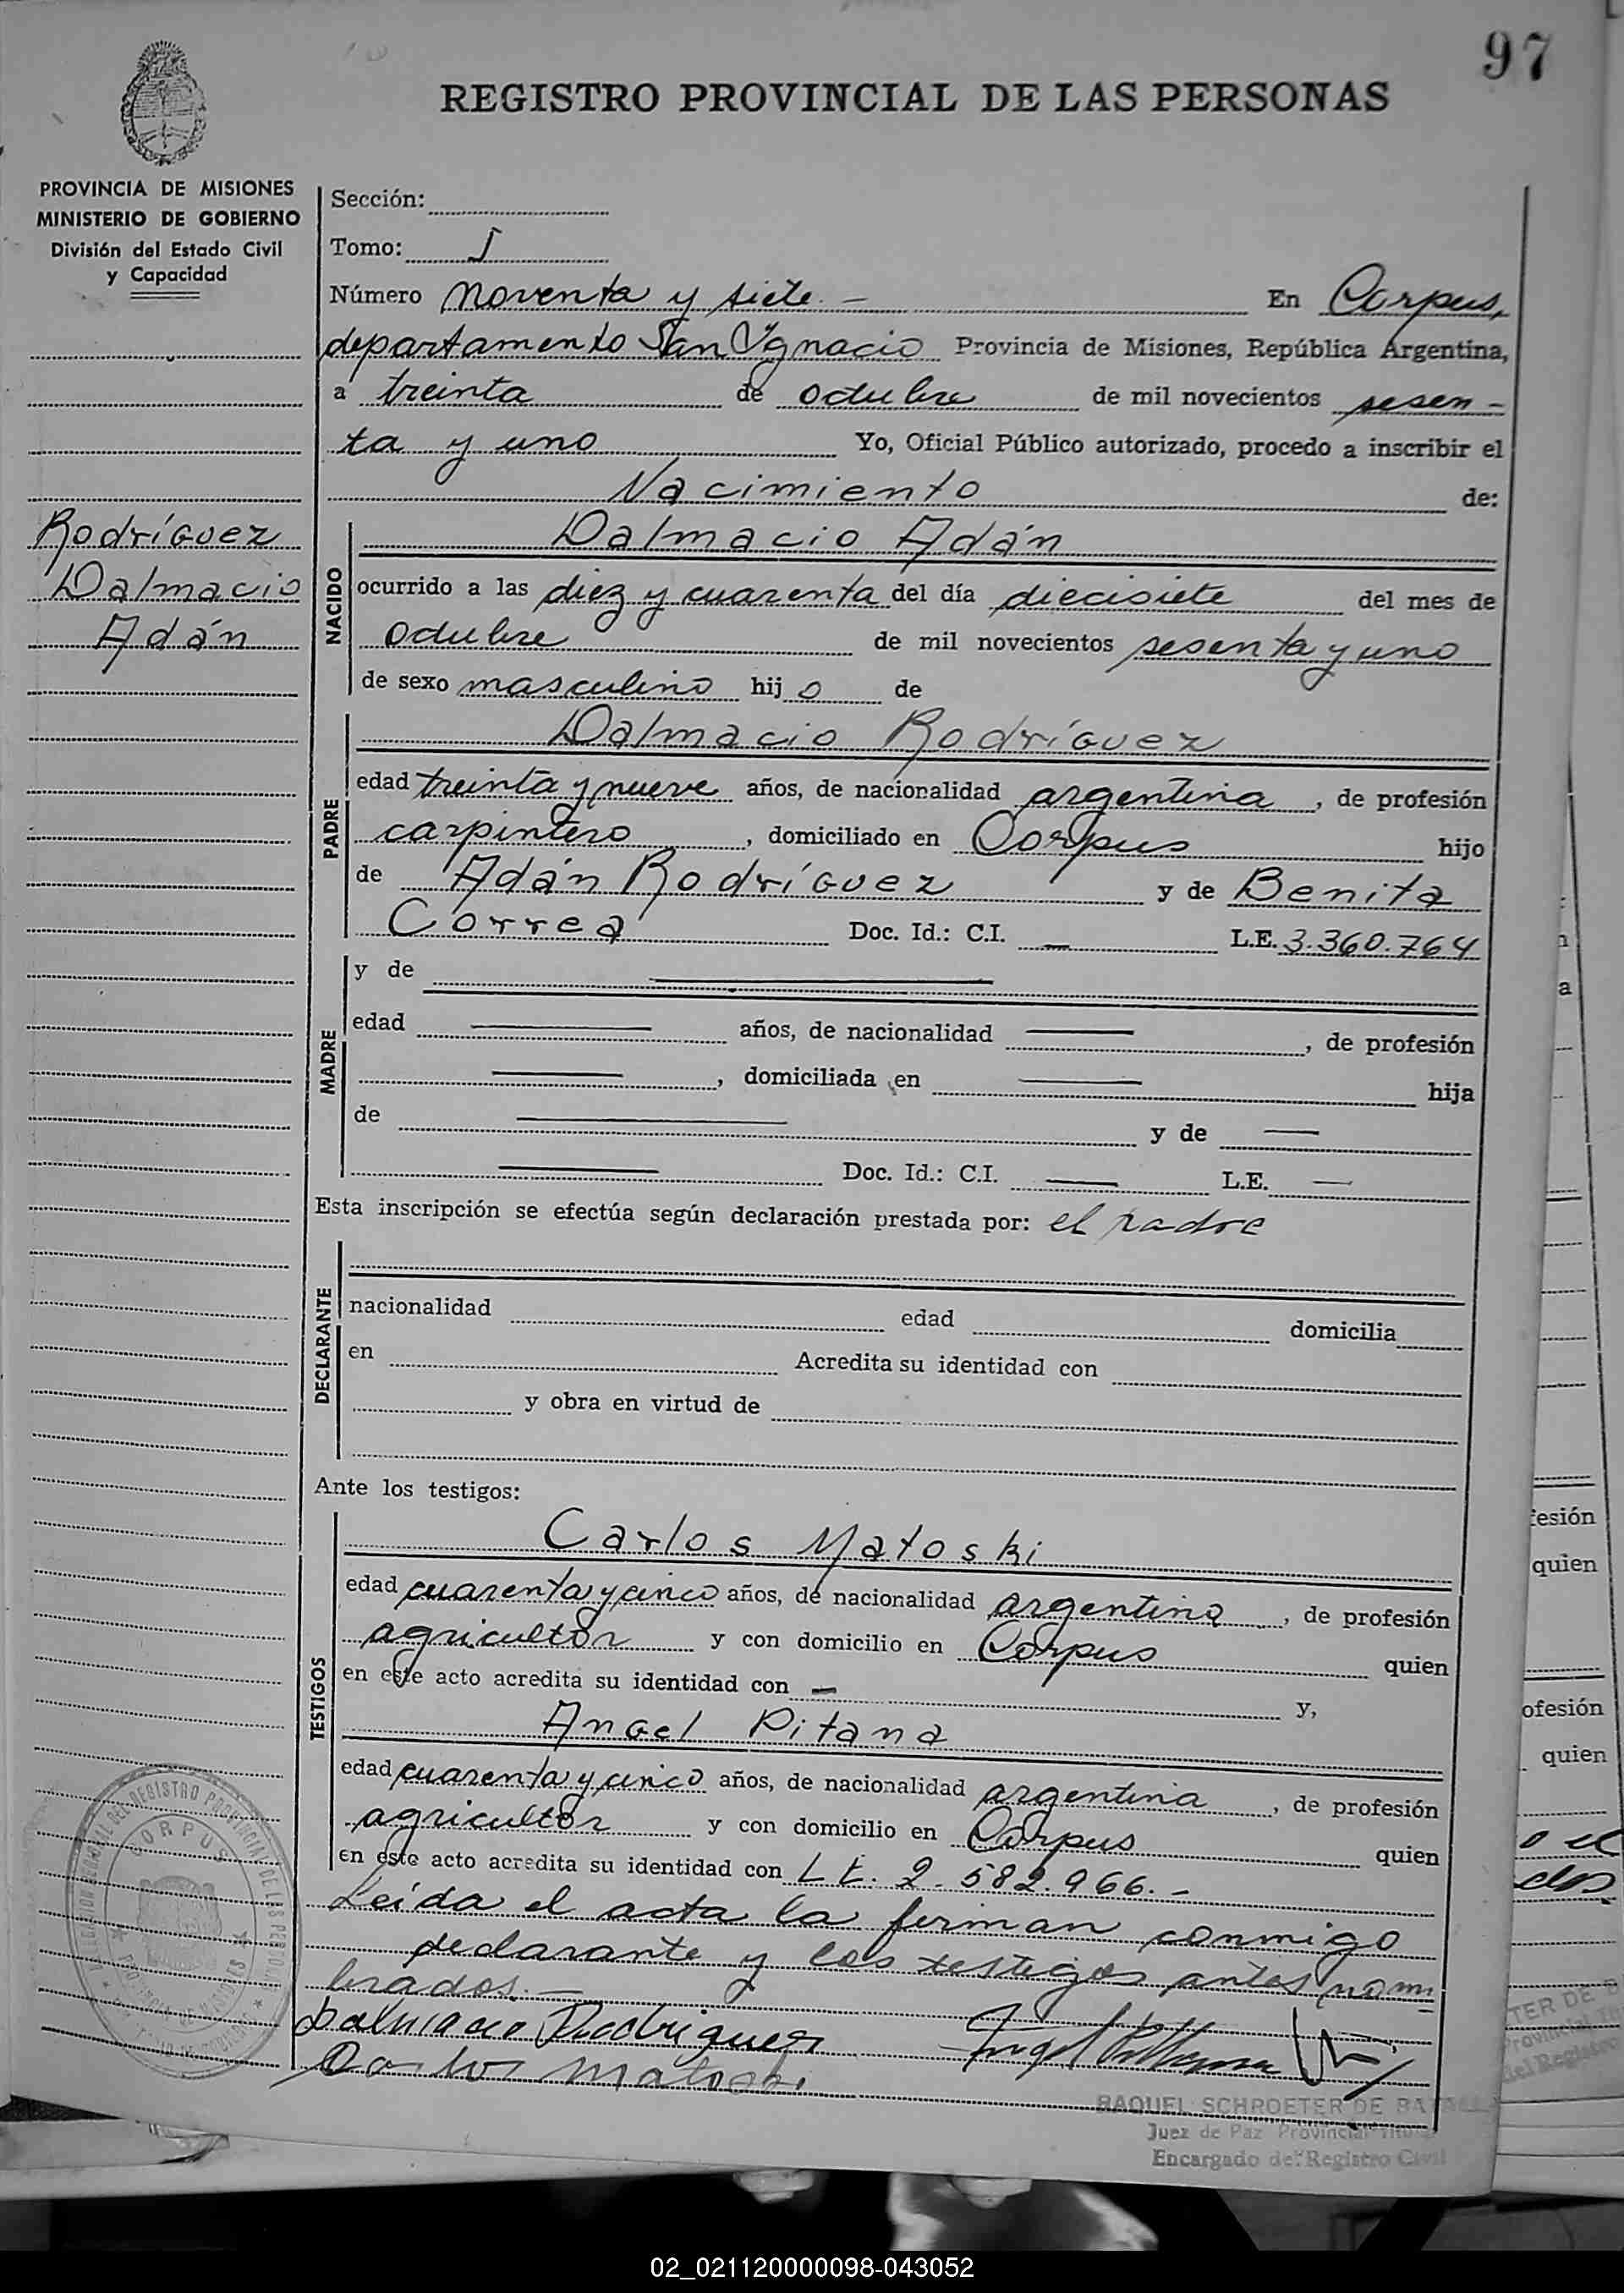 97
REGISTRO PROVINCIAL DE LAS PERSONAS
PROVINCIA DE MISIONES
MINISTERIO DE GOBIERNO
División del Estado Civil
y Capacidad
Sección:
Tomo: I
Número noventa y siete.- En Corpus,
departamento San Ygnacio Provincia de Misiones, República Argentina,
a treinta de octubre de mil novecientos sesen-
ta y uno Yo, Oficial Público autorizado, procedo a inscribir el
Nacimiento de:
Rodríguez
Dalmacio
Adán
NACIDO
Dalmacio Adán
ocurrido a las diez y cuarenta del día diecisiete del mes de
octubre de mil novecientos sesenta y uno
de sexo masculino hijo de
PADRE
Dalmacio Rodríguez
edad treinta y nueve años, de nacionalidad argentina, de profesión
carpintero, domiciliado en Corpus hijo
de Adán Rodríguez y de Benita
Correa Doc. Id.: C.I. — L.E. 3.360.764
MADRE
y de —
edad — años, de nacionalidad —, de profesión
—, domiciliada en — hija
de — y de —
— Doc. Id.: C.I. — L.E. —
Esta inscripción se efectúa según declaración prestada por: el padre
DECLARANTE
nacionalidad edad domicilia
en Acredita su identidad con
y obra en virtud de
Ante los testigos:
TESTIGOS
Carlos Matoski
edad cuarenta y cinco años, de nacionalidad argentina, de profesión
agricultor y con domicilio en Corpus quien
en este acto acredita su identidad con — y,
Angel Pitana
edad cuarenta y cinco años, de nacionalidad argentina, de profesión
agricultor y con domicilio en Corpus quien
en este acto acredita su identidad con L E. 2.582.966.-
Leída el acta la firman conmigo
declarante y los testigos antes nom
brados.-
Dalmacio Rodriguez
Carlos Matoski
RAQUEL SCHROETER DE
Juez de Paz Provincial
Encargado del Registro Civil
CORPUS
REGISTRO PROVINCIAL DE LAS
PROVINCIA DE MISIONES
esión
quien
ofesión
quien
TER DE
Provincial
del Registro
02_021120000098-043052